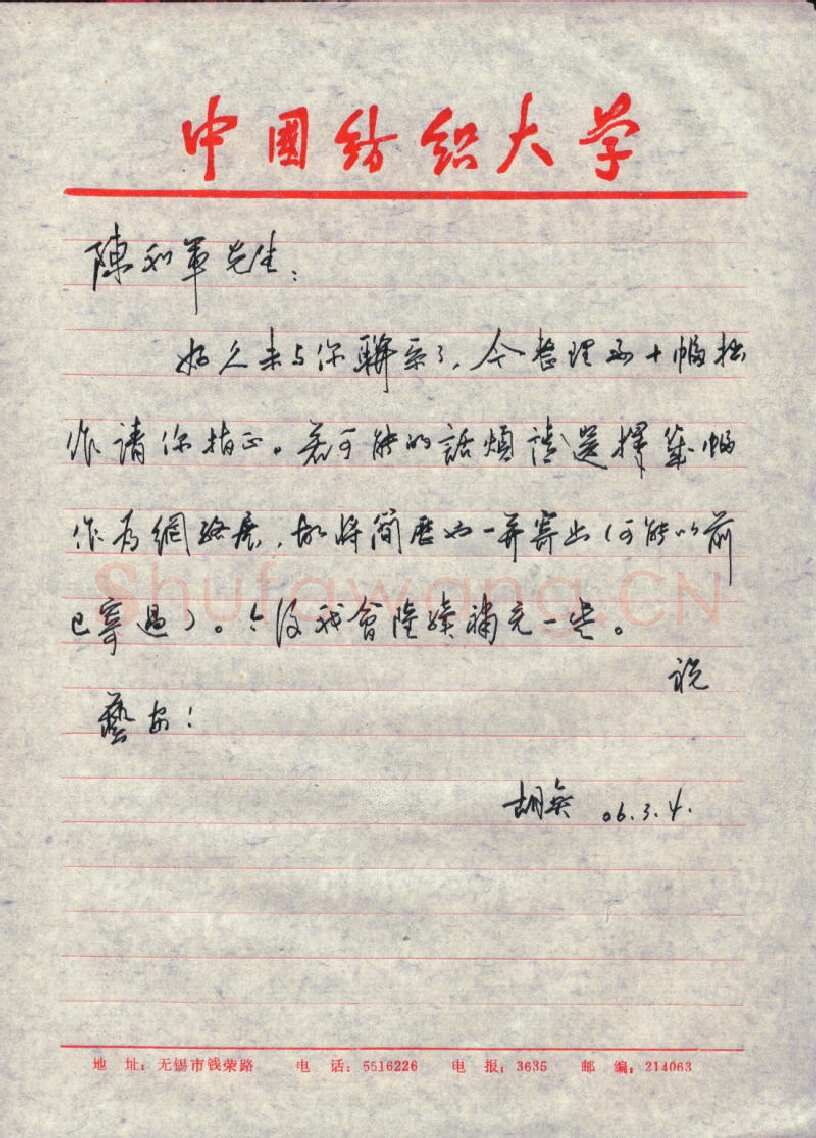 中国纺织大学
陳和軍先生：
好久未与你聯系了，今整理五十幅拙
作請你指正。若可能的話煩請選擇幾幅
作为網络展，故将简歷也一并寄出（可能以前
已寄過）。今后我會陸續補充一些。
祝
藝安！
胡 06.3.4.
Shufawang.CN
地 址：无锡市钱荣路 电 话：5516226 电 报：3635 邮 编：214063